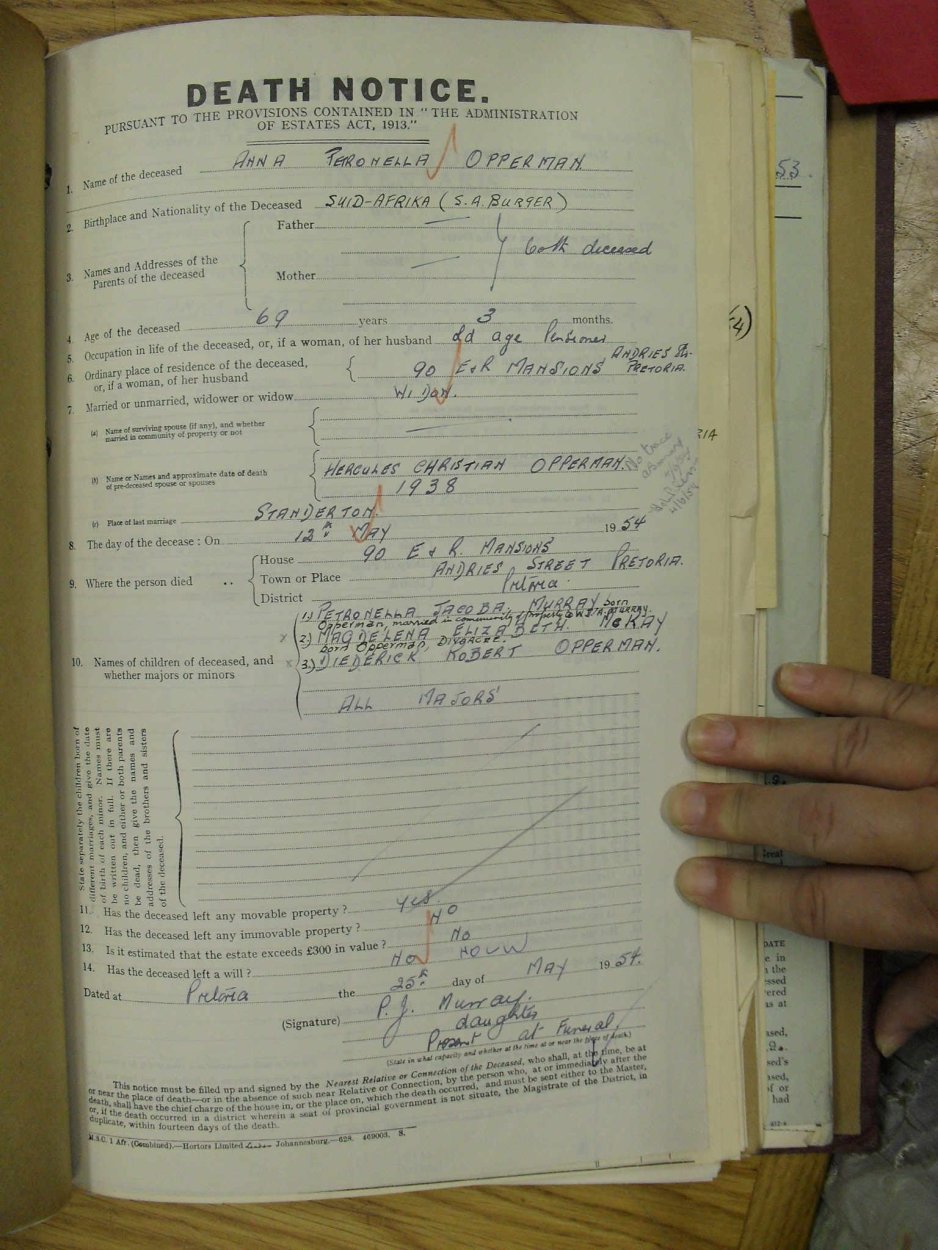 DEATH NOTICE.
PURSUANT TO THE PROVISIONS CONTAINED IN "THE ADMINISTRATION
OF ESTATES ACT, 1913."
1. Name of the deceased ANNA PERONELLA OPPERMAN.
2. Birthplace and Nationality of the Deceased SUID-AFRIKA (S.A. BURGER)
3. Names and Addresses of the Parents of the deceased
Father —
both deceased
Mother —
4. Age of the deceased 69 years 3 months.
5. Occupation in life of the deceased, or, if a woman, of her husband old age Pensioner
6. Ordinary place of residence of the deceased, or, if a woman, of her husband 90 E & R MANSIONS ANDRIES St. PRETORIA.
7. Married or unmarried, widower or widow WIDOW.
(a) Name of surviving spouse (if any), and whether married in community of property or not —
(b) Name or Names and approximate date of death of pre-deceased spouse or spouses HERCULES CHRISTIAN OPPERMAN.
1938
(c) Place of last marriage STANDERTON.
8. The day of the decease : On 12th MAY 1954
9. Where the person died ..
House 90 E & R. MANSIONS
Town or Place ANDRIES STREET PRETORIA.
District Pretoria.
10. Names of children of deceased, and whether majors or minors
1) PETRONELLA JACOBA, MURRAY born
Opperman, married in community of property to W.J.A. MURRAY.
2) MAGDELENA ELIZABETH. McKAY
born Opperman, Divorcee.
3) DIEDERICK ROBERT OPPERMAN.
ALL MAJORS
State separately the children born of
different marriages, and give the date
of birth of each minor. Names must
be written out in full. If there are
no children, and either or both parents
be dead, then give the names and
addresses of the brothers and sisters
of the deceased.
11. Has the deceased left any movable property ? yes.
12. Has the deceased left any immovable property ? NO
13. Is it estimated that the estate exceeds £300 in value ? No
14. Has the deceased left a will ? No NOUW
Dated at Pretoria the 25th day of MAY 1954.
(Signature) P. J. Murray.
daughter
Present at Funeral.
(State in what capacity and whether at the time at or near the place of death.)
This notice must be filled up and signed by the Nearest Relative or Connection of the Deceased, who shall, at the time, be at
or near the place of death—or in the absence of such near Relative or Connection, by the person who, at or immediately after the
death, shall have the chief charge of the house in, or the place on, which the death occurred, and must be sent either to the Master,
or, if the death occurred in a district wherein a seat of provincial government is not situate, the Magistrate of the District, in
duplicate, within fourteen days of the death.
M.S.C. 1 Aft. (Combined).—Hortors Limited Johannesburg—628. 469003. S.
53